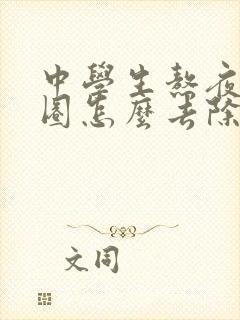 中學生熬夜
圈怎麼去除
文同